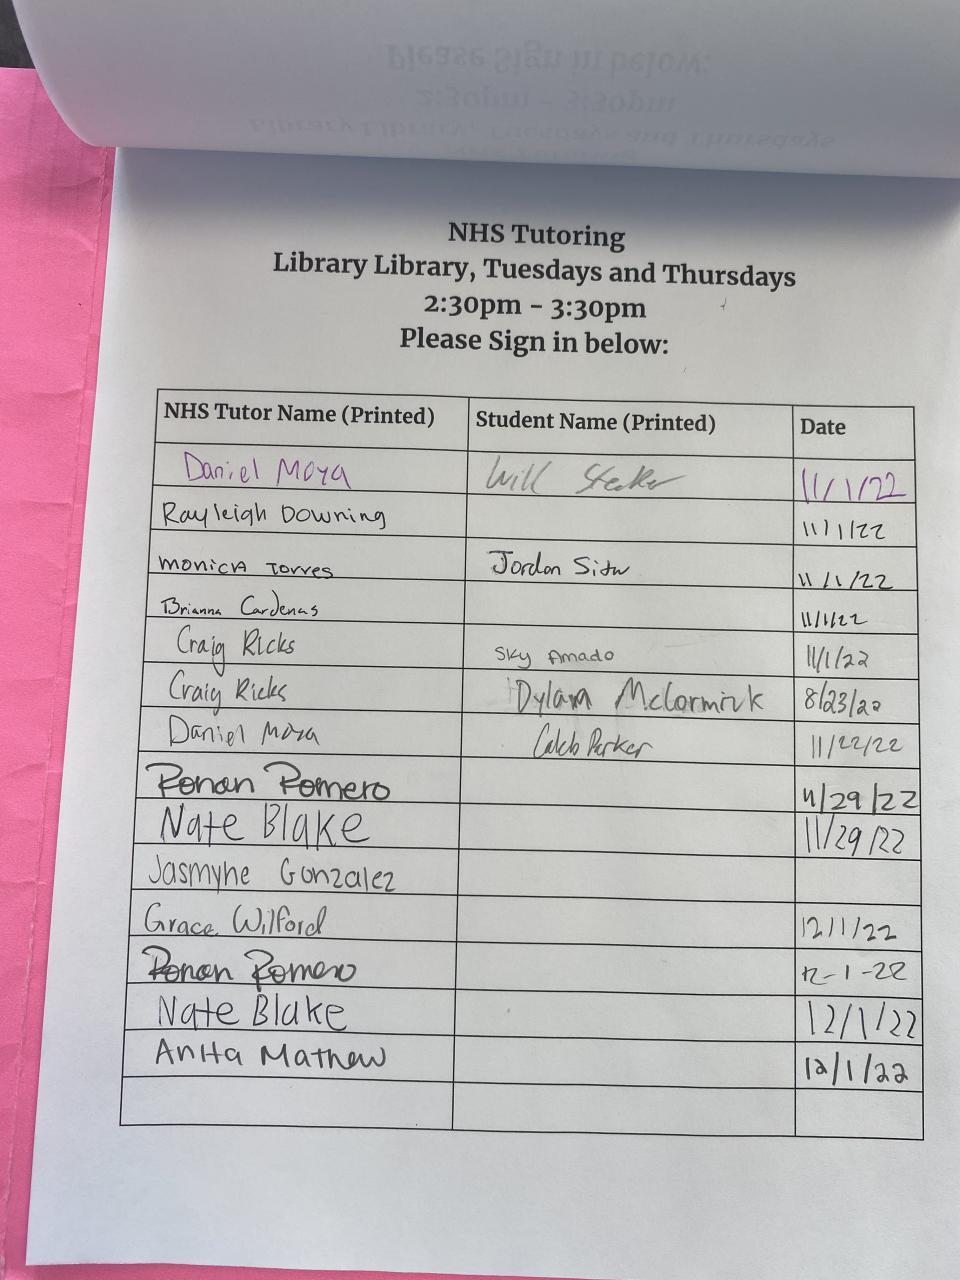 NHS Tutoring
Library Library, Tuesdays and Thursdays
2:30pm - 3:30pm
Please Sign in below:
NHS Tutor Name (Printed) Student Name (Printed) Date
Daniel Moya Will 11/1/22
Rayleigh Downing 11/1/22
Monica Torres Jordan 11/1/22
Brianna Cardenas 11/1/22
Craig Ricks Sky Amado 11/1/22
Craig Ricks Dylan McCormick 8/23/22
Daniel Moya Caleb Parker 11/22/22
Ronan Romero 11/29/22
Nate Blake 11/29/22
Jasmyne Gonzalez
Grace Wilford 12/1/22
Ronan Romero 12-1-22
Nate Blake 12/1/22
Anita Mathew 12/1/22